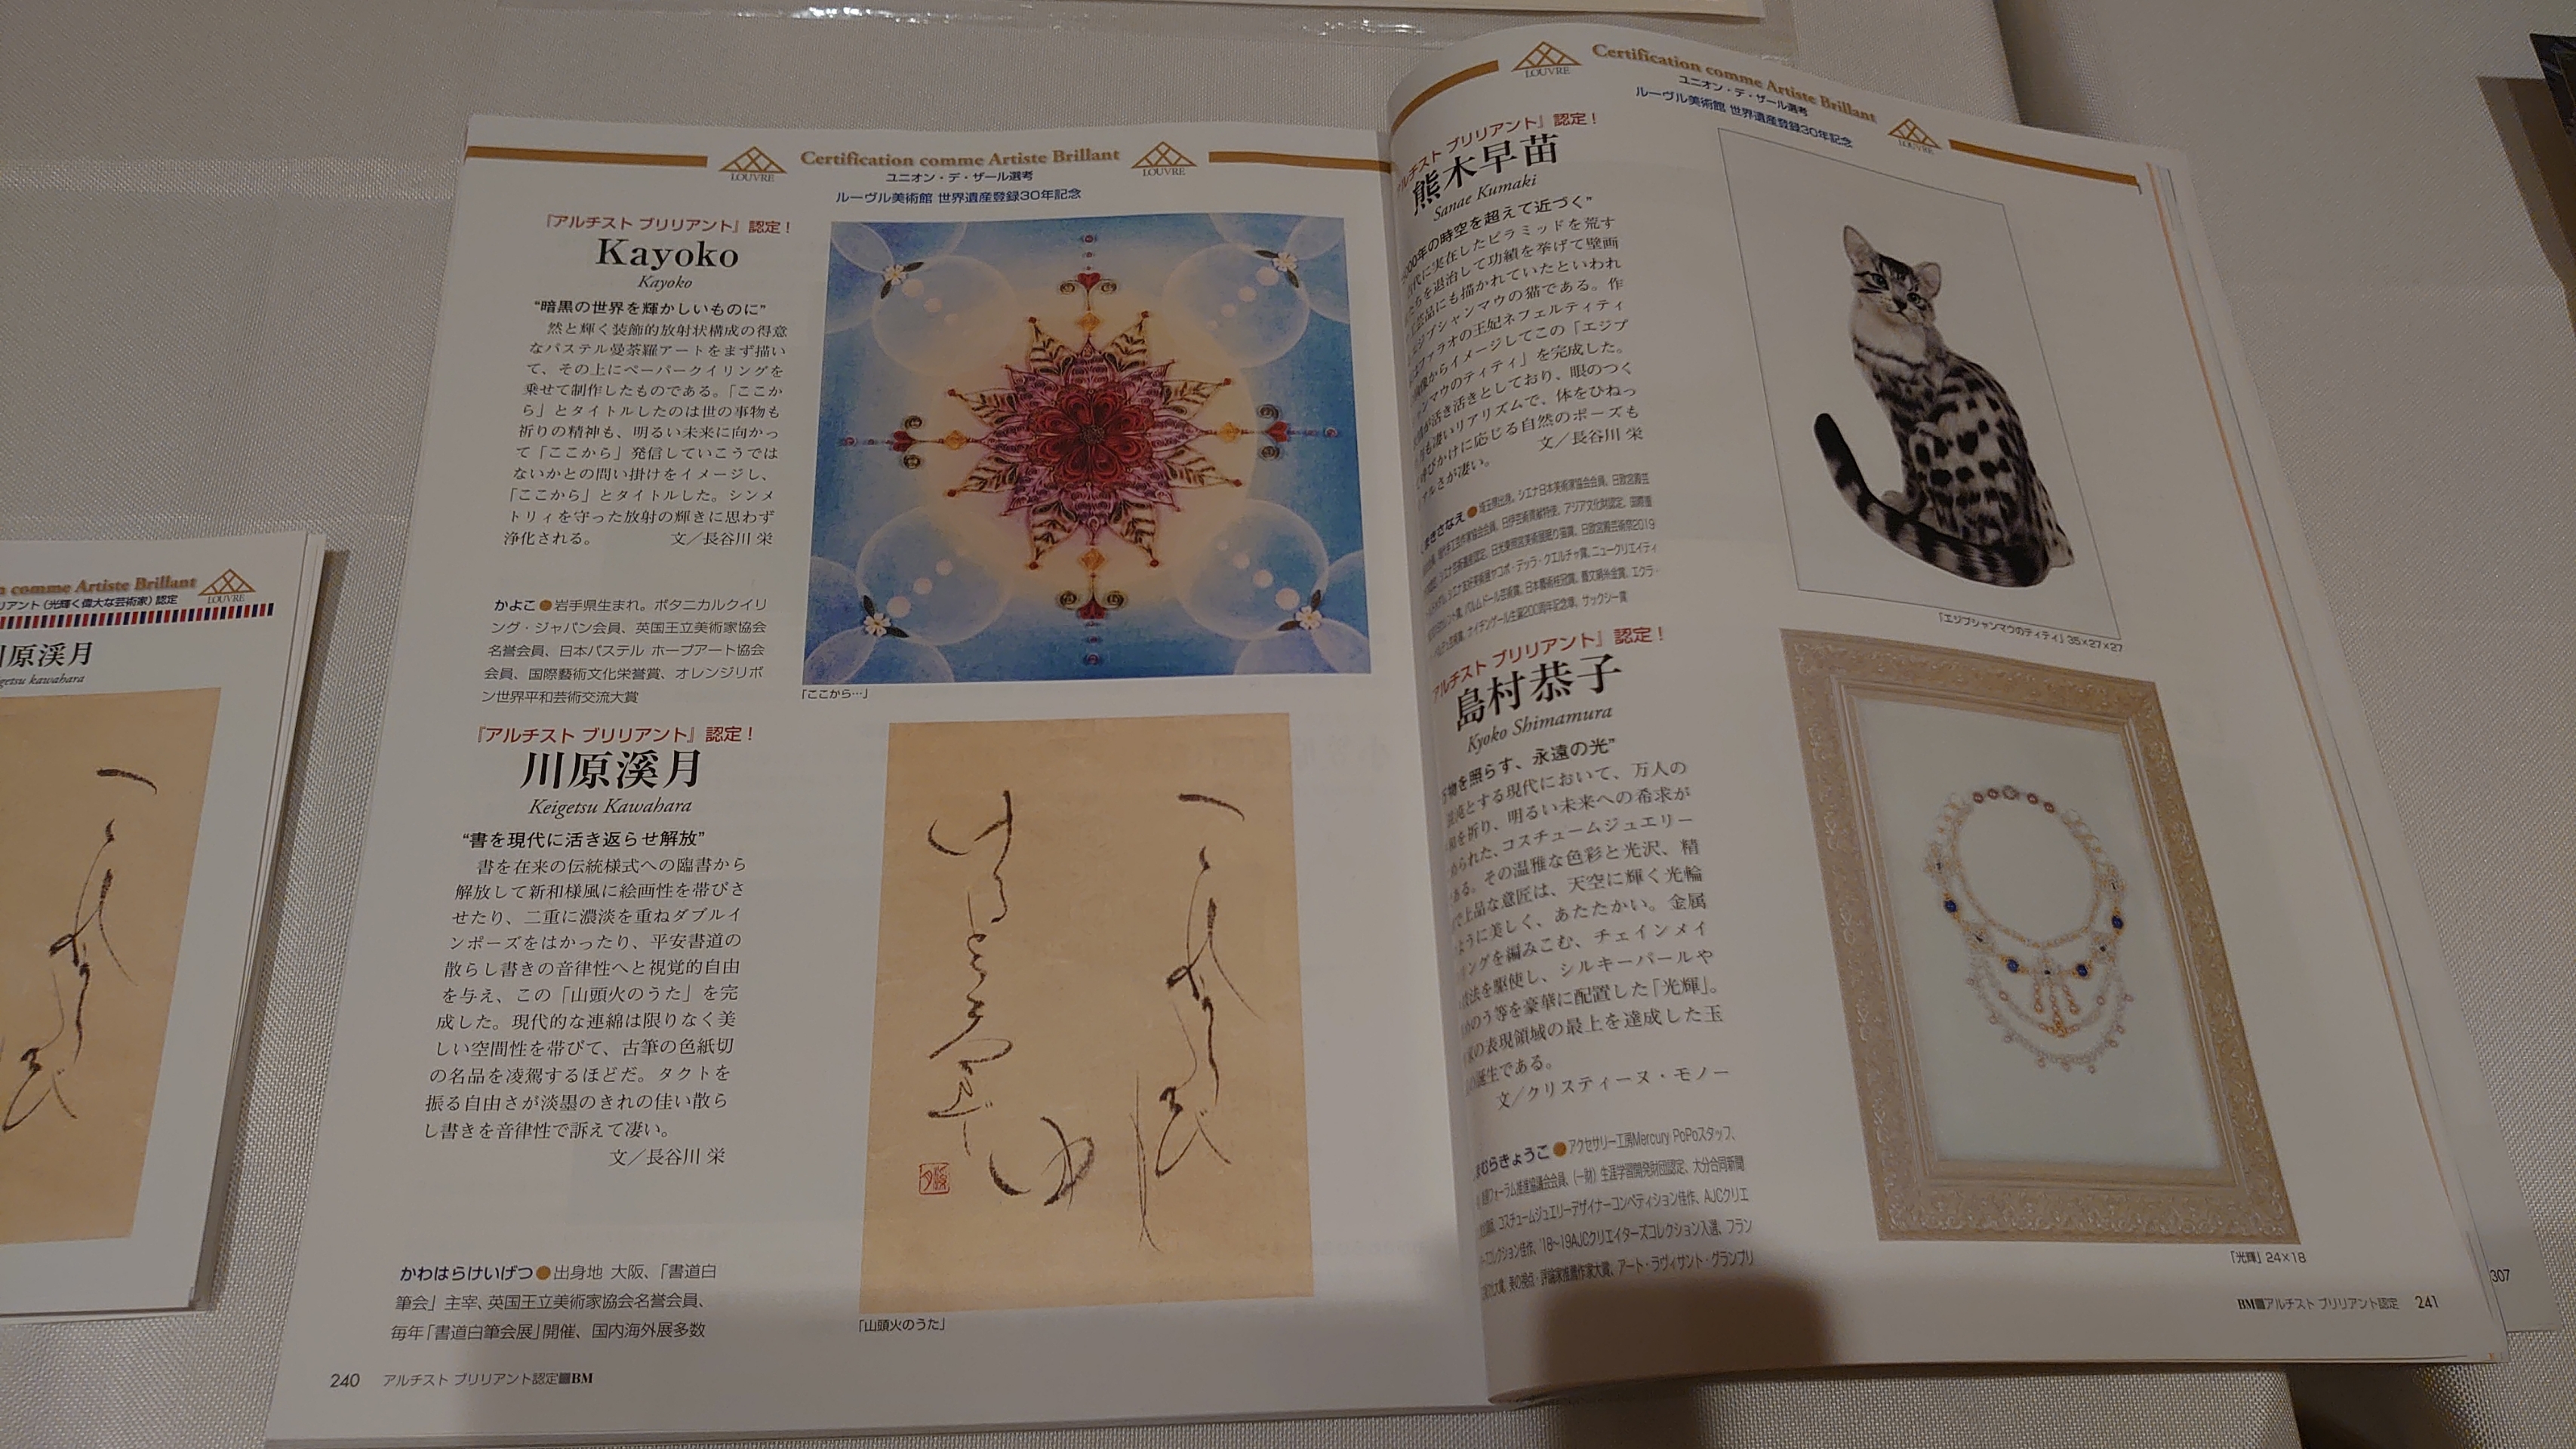 LOUVRE
Certification comme Artiste Brillant
LOUVRE
ユニオン・デ・ザール選考
ルーヴル美術館 世界遺産登録30年記念
『アルチスト ブリリアント』認定！
Kayoko
Kayoko
“暗黒の世界を輝かしいものに”
然と輝く装飾的放射状構成の得意
なパステル曼荼羅アートをまず描い
て、その上にペーパークイリングを
乗せて制作したものである。「ここか
ら」とタイトルしたのは世の事物も
祈りの精神も、明るい未来に向かっ
て「ここから」発信していこうでは
ないかとの問い掛けをイメージし、
「ここから」とタイトルした。シンメ
トリィを守った放射の輝きに思わず
浄化される。 文／長谷川 栄
かよこ●岩手県生まれ。ボタニカルクイリ
ング・ジャパン会員、英国王立美術家協会
名誉会員、日本パステル ホープアート協会
会員、国際藝術文化栄誉賞、オレンジリボ
ン世界平和芸術交流大賞
「ここから…」
『アルチスト ブリリアント』認定！
川原溪月
Keigetsu Kawahara
“書を現代に活き返らせ解放”
書を在来の伝統様式への臨書から
解放して新和様風に絵画性を帯びさ
せたり、二重に濃淡を重ねダブルイ
ンポーズをはかったり、平安書道の
散らし書きの音律性へと視覚的自由
を与え、この「山頭火のうた」を完
成した。現代的な連綿は限りなく美
しい空間性を帯びて、古筆の色紙切
の名品を凌駕するほどだ。タクトを
振る自由さが淡墨のきれの佳い散ら
し書きを音律性で訴えて凄い。
文／長谷川 栄
かわはらけいげつ●出身地 大阪、「書道白
筆会」主宰、英国王立美術家協会名誉会員、
毎年「書道白筆会展」開催、国内海外展多数
「山頭火のうた」
240 アルチスト ブリリアント認定■BM
LOUVRE
Certification comme Artiste Brillant
LOUVRE
ユニオン・デ・ザール選考
ルーヴル美術館 世界遺産登録30年記念
アルチスト ブリリアント』認定！
熊木早苗
Sanae Kumaki
年の時空を超えて近づく”
代に実在したピラミッドを荒す
ちを退治して功績を挙げて壁画
芸品にも描かれていたといわれ
ジプシャンマウの猫である。作
ファラオの王妃ネフェルティティ
像からイメージしてこの「エジプ
ャンマウのティティ」を完成した。
が活き活きとしており、眼のつく
も凄いリアリズムで、体をひねっ
びかけに応じる自然のポーズも
ルさが凄い。 文／長谷川 栄
まきさなえ●埼玉県出身。シエナ日本美術家協会会員、日欧宮殿芸
「エジプシャンマウのティティ」35×27×27
アルチスト ブリリアント』認定！
島村恭子
Kyoko Shimamura
物を照らす、永遠の光”
とする現代において、万人の
を祈り、明るい未来への希求が
められた、コスチュームジュエリー
ある。その温雅な色彩と光沢、精
で上品な意匠は、天空に輝く光輪
ように美しく、あたたかい。金属
ングを編みこむ、チェインメイ
技法を駆使し、シルキーパールや
めのう等を豪華に配置した「光輝」。
の表現領域の最上を達成した玉
誕生である。
文／クリスティーヌ・モノー
むらきょうこ●アクセサリー工房Mercury PoPoスタッフ、
フォーラム推進協議会会員、(一財)生涯学習開発財団認定、大分合同新聞
コスチュームジュエリーデザイナーコンペティション佳作、AJCクリエ
コレクション佳作、'18〜19AJCクリエイターズコレクション入選、フラン
大賞、美の視点・評論家推薦作家大賞、アート・ラヴィサント・グランプリ
「光輝」24×18
BM■アルチスト ブリリアント認定 241
307
comme Artiste Brillant
LOUVRE
リアント（光輝く偉大な芸術家）認定
原溪月
getsu kawahara